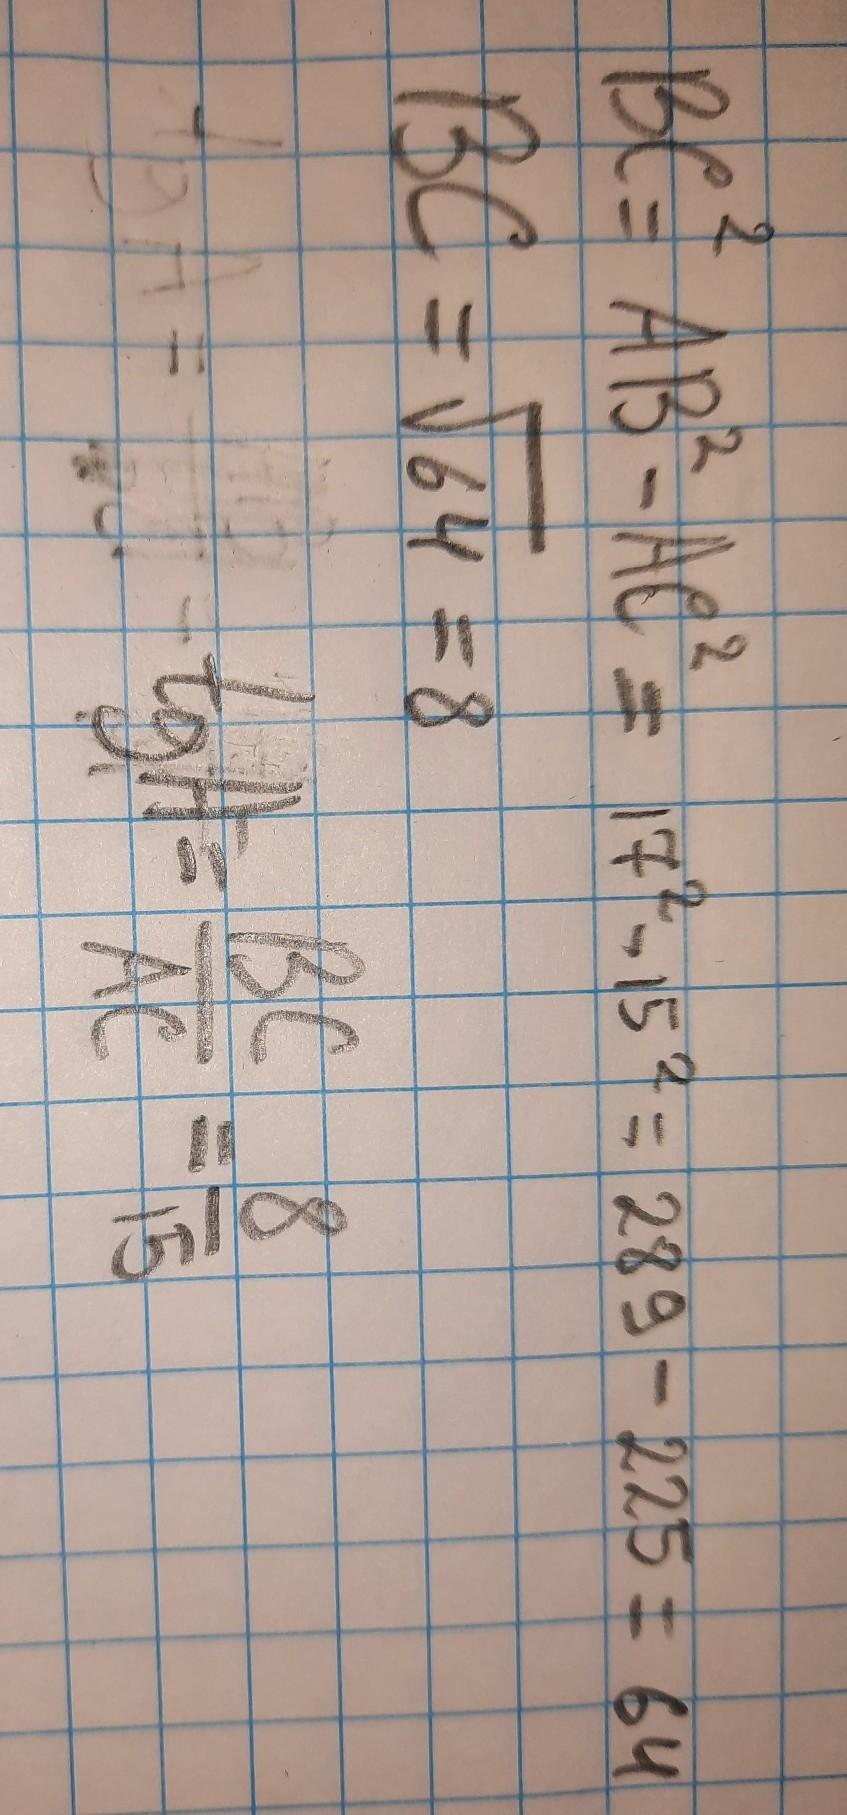 BC² = AB² - AC² = 17² - 15² = 289 - 225 = 64
BC = √64 = 8
tgA =
tgA = BC/AC = 8/15